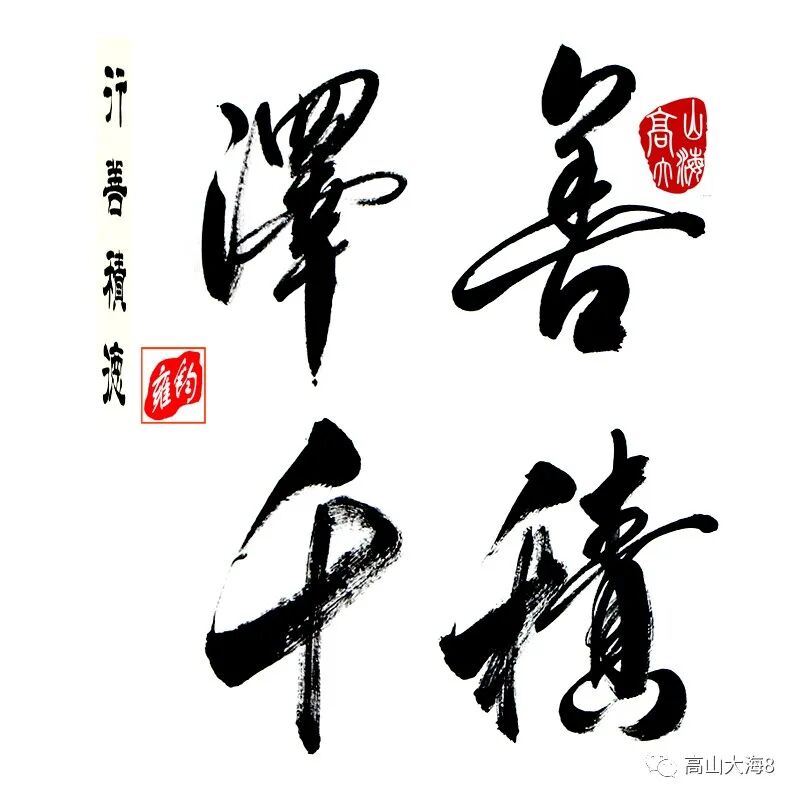 善積
澤千
行善積德
高山
大海
鈞雍
高山大海8